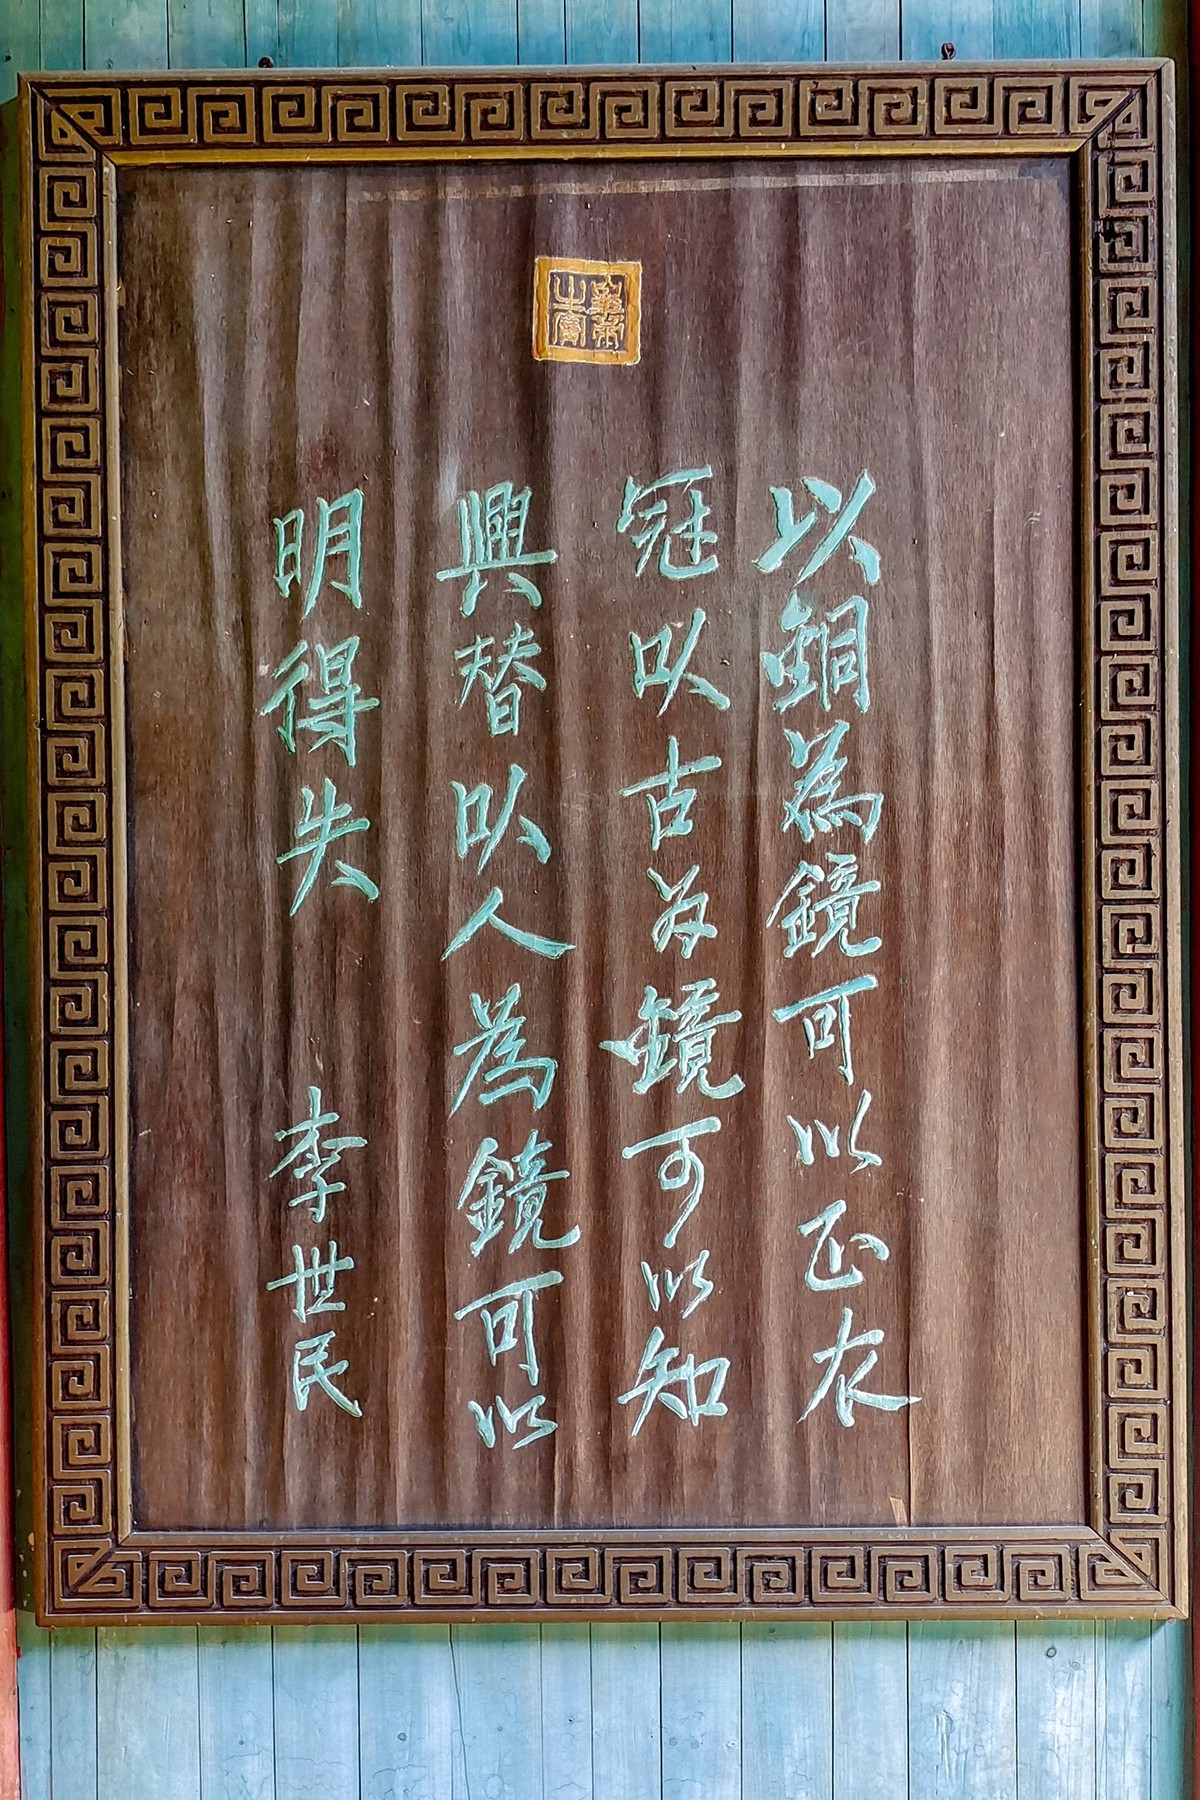 以銅為鏡可以正衣
冠以古為鏡可以知
興替以人為鏡可以
明得失 李世民